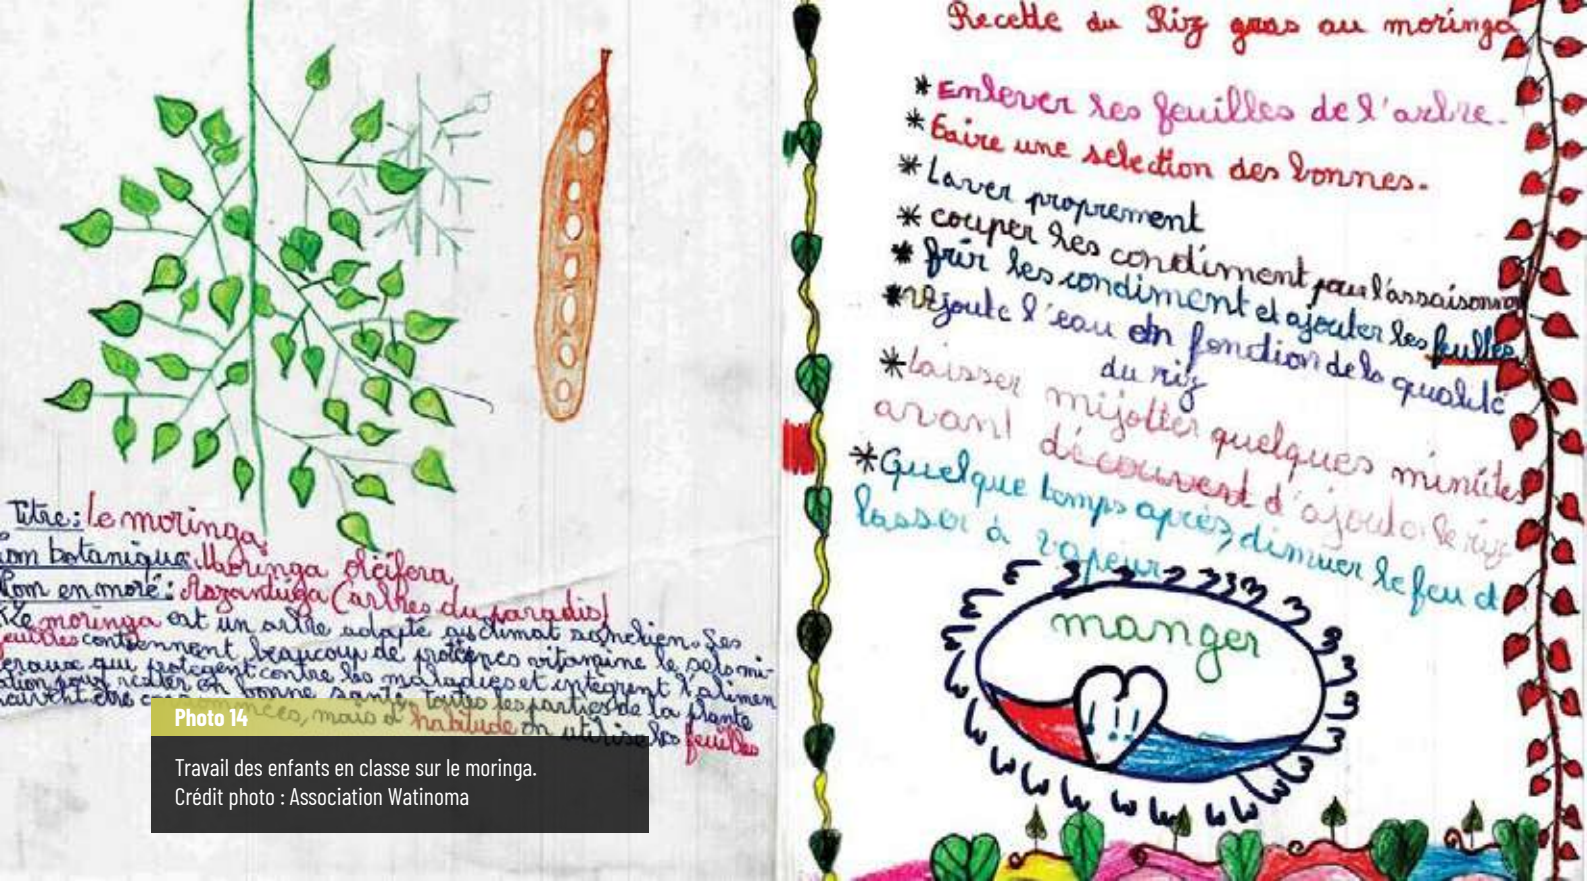 Titre: Le moringa
om botanique: Moringa oléifera
Nom en moré: Arzantiiga (arbres du paradis)
Le moringa est un arbre adapté au climat sahelien. Ses
feuilles contiennent beaucoup de protéines vitamine le sels mi-
eraux qui protègent contre les maladies et intègrent l'alimen
ation pour rester en bonne santé, toutes les parties de la plante
euvent être mais d'habitude on utilise les feuilles
Photo 14
Travail des enfants en classe sur le moringa.
Crédit photo : Association Watinoma
Recette du Riz gras au moringa
* Enlever les feuilles de l'arbre.
* Faire une selection des bonnes.
* Laver proprement
* couper les condiment pour l'assaisonn
* frir les condiment et ajouter les feuilles
* Ajoute l'eau en fonction de la qualité
du riz
* laisser mijotter quelques minutes
avant d'ajouter le riz
* Quelque temps après, dimuer le feu et
lasser à vapeur
manger